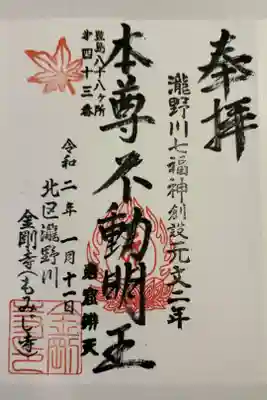 奉拝
瀧野川七福神創設元文二年
豊島八十八ヶ所
第四十三番
本尊不動明王
令和二年一月十一日
北区瀧野川
金剛寺(もみじ寺)